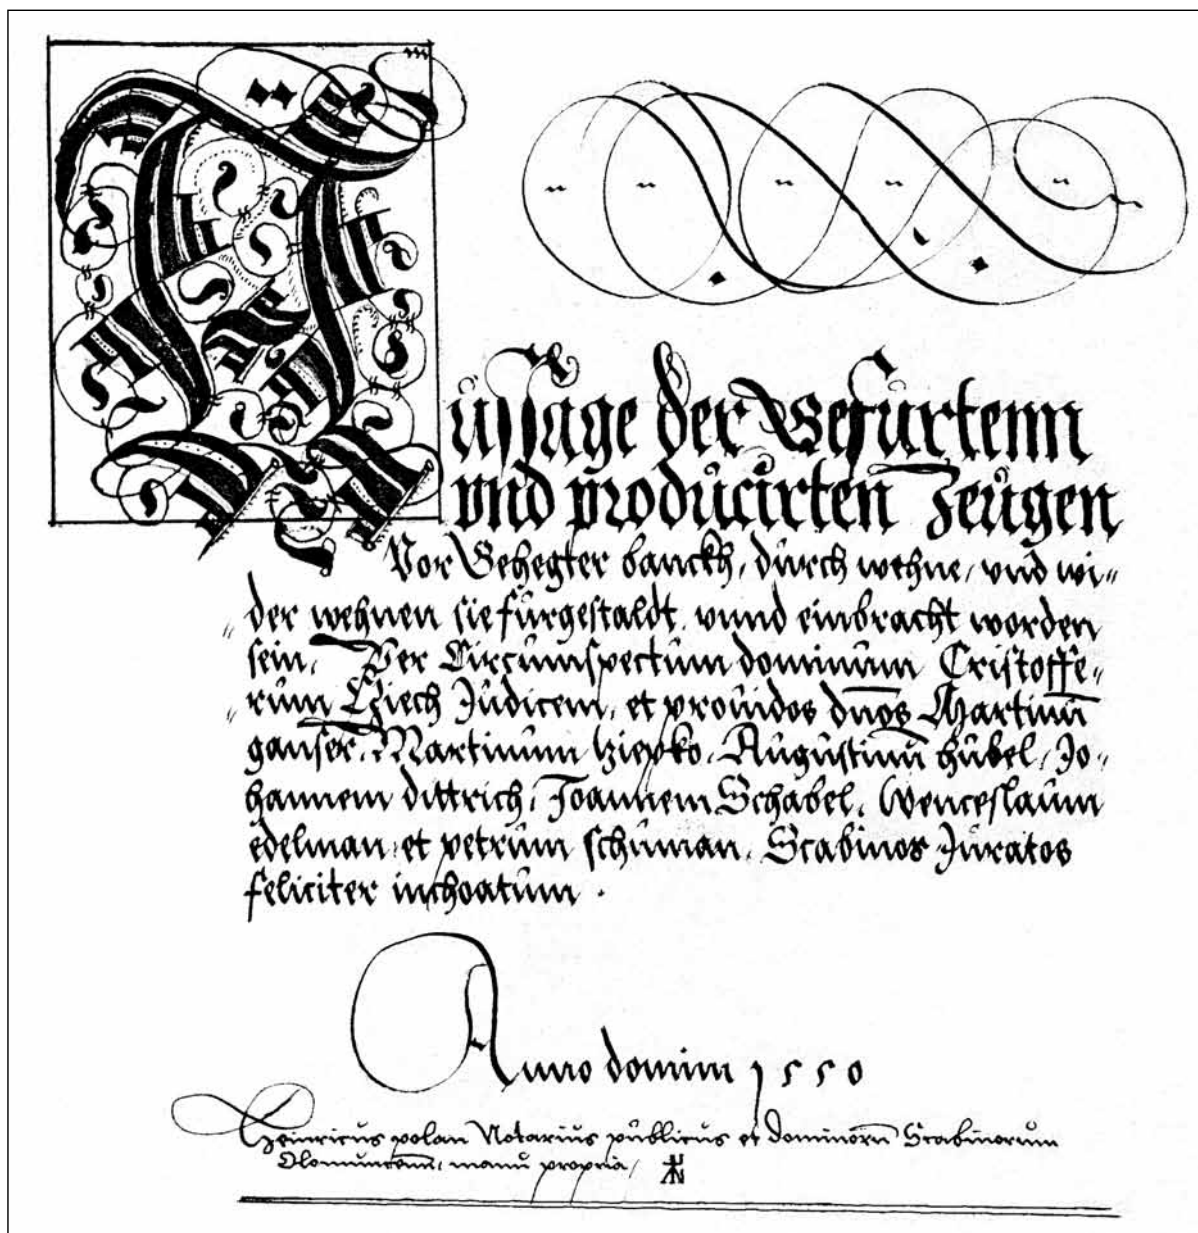 Aussage der Gefurtenn
vnd producirten Zeugen
Vor Gehegter banckh, durch wehne, vnd wi=
der wehnen sie furgestaldt, vnnd einbracht worden
sein, Per Circumspectum dominum Cristoffe=
rum Judicem, et prouidos dnos Martinum
ganser, Martinum Augustinum hubel, Jo=
hannem dittrich, Joannem Schabel, Wenceslaum
edelman, et petrum schuman, Scabinos Juratos
feliciter inchoatum .
Anno domini 1550
Heinricus polan Notarius publicus et dominorū Scabinorum
Olomuncenn, manu propria,